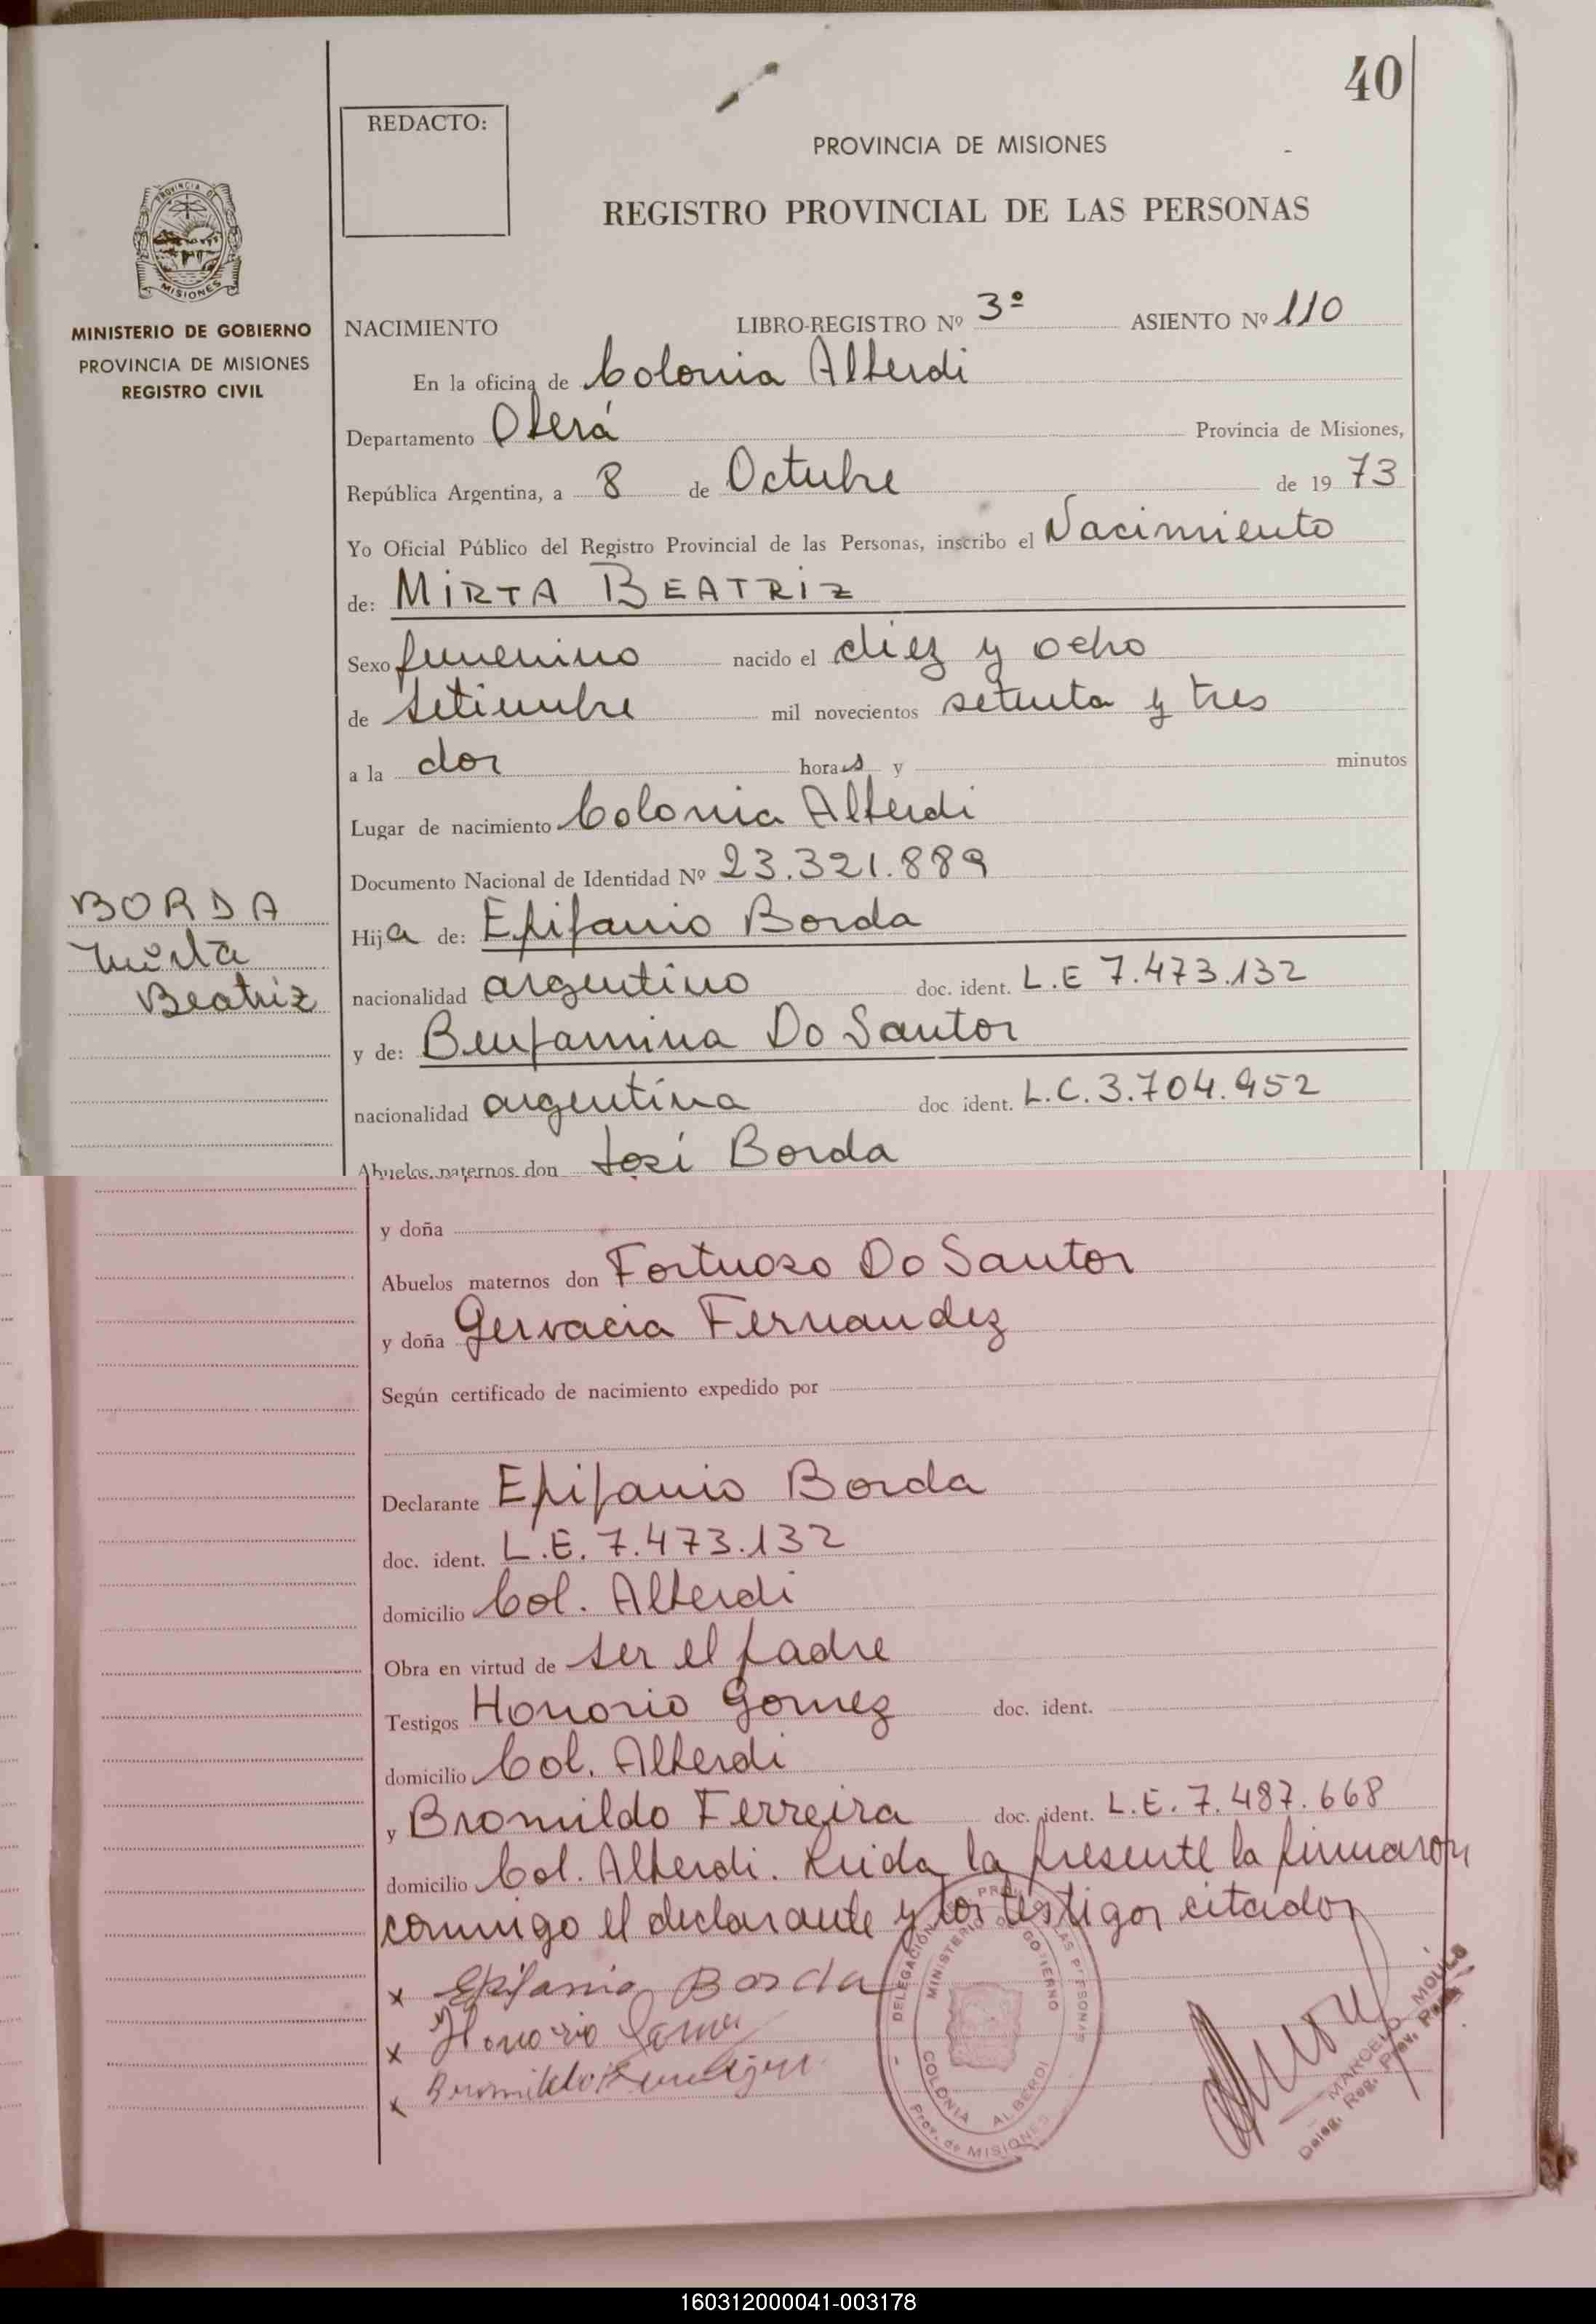 40
REDACTO:
PROVINCIA DE MISIONES
REGISTRO PROVINCIAL DE LAS PERSONAS
PROVINCIA DE
MISIONES
MINISTERIO DE GOBIERNO
PROVINCIA DE MISIONES
REGISTRO CIVIL
NACIMIENTO LIBRO-REGISTRO Nº 3º ASIENTO Nº 110
En la oficina de Colonia Alberdi
Departamento Oberá Provincia de Misiones,
República Argentina, a 8 de Octubre de 19 73
Yo Oficial Público del Registro Provincial de las Personas, inscribo el Nacimiento
de: MIRTA BEATRIZ
Sexo femenino nacido el diez y ocho
de setiembre mil novecientos setenta y tres
a la dos horas y minutos
Lugar de nacimiento Colonia Alberdi
Documento Nacional de Identidad Nº 23.321.889
BORDA
Mirta
Beatriz
Hija de: Epifanio Borda
nacionalidad argentino doc. ident. L.E 7.473.132
y de: Benjamina Do Santos
nacionalidad argentina doc ident. L.C. 3.704.952
Abuelos paternos don José Borda
y doña
Abuelos maternos don Fortuoso Do Santos
y doña Gervacia Fernandez
Según certificado de nacimiento expedido por
Declarante Epifanio Borda
doc. ident. L.E. 7.473.132
domicilio Col. Alberdi
Obra en virtud de ser el padre
Testigos Honorio Gomez doc. ident.
domicilio Col. Alberdi
y Bromildo Ferreira doc. ident. L.E. 7.487.668
domicilio Col. Alberdi. Leida la presente la firmaron
conmigo el declarante y los testigos citados
x Epifanio Borda
x Honorio
x Bromildo
MINISTERIO DE GOBIERNO
COLONIA ALBERDI
Prov. de MISIONES
MARCELO
Deleg. Reg. Prov. Pers.
160312000041-003178